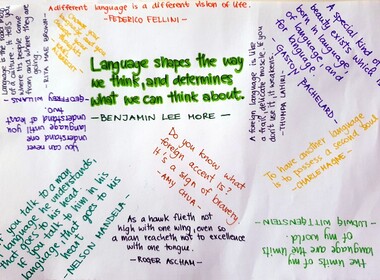 A different language is a different vision of life.
-FEDERICO FELLINI-
Language shapes the way
we think, and determines
what we can think about.
-BENJAMIN LEE MORE-
A special kind of
beauty exists which is
born in language, of
language, and
for language.
-GASTON BACHELARD.
-RITA MAE BROWN-
You can never
understand one
language until you
understand at least
-GEOFFREY WILLANS
A foreign language is like
a frail, delicate muscle. If you
don't use it, it weakens.
-JHUMPA LAHIRI-
Do you know what
foreign accent is?
It's a sign of bravery.
Amy CHUA-
To have another language
is to possess a second soul.
-CHARLEMAGNE-
If you talk to a man
in a language he understands,
that goes to his head.
If you talk to him in his
language, that goes to his
heart.
-NELSON MANDELA
As a hawk flieth not
high with one wing, even so
a man reacheth not to excellence
with one tongue.
-ROGER ASCHAM-
The limits of my
language are the limits
of my world.
-LUDWIG WITTGENSTEIN-